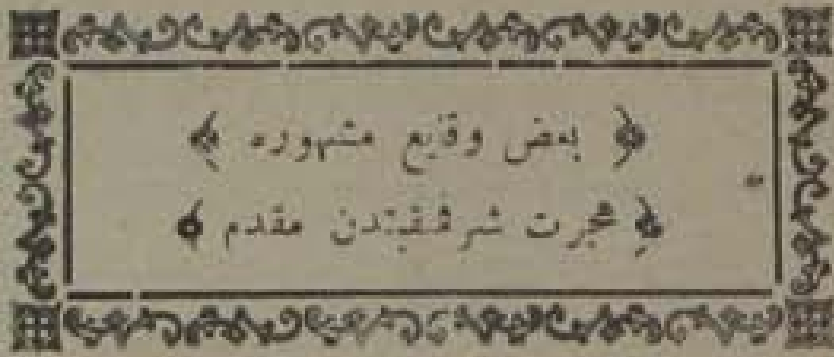 ﴿ بعض وقايع مشهوره ﴾
﴿ هجرت شرفنقبتدن مقدم ﴾